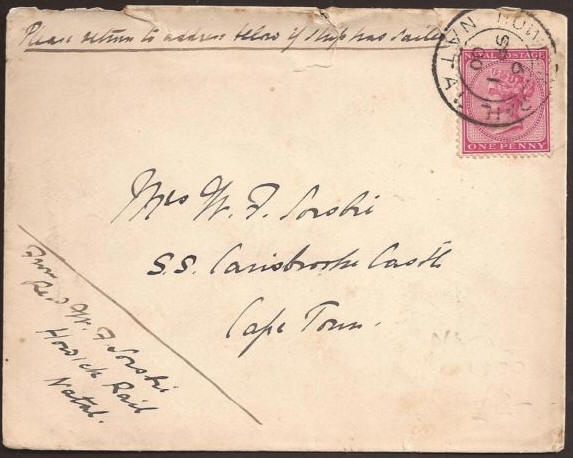 Please return to address below if ship has sailed
NATAL POSTAGE
ONE PENNY
NATAL
Mrs W. F. Sorsbie
S.S. Carisbrooke Castle
Cape Town.
From
Rev W. F. Sorsbie
Howick Rail
Natal.